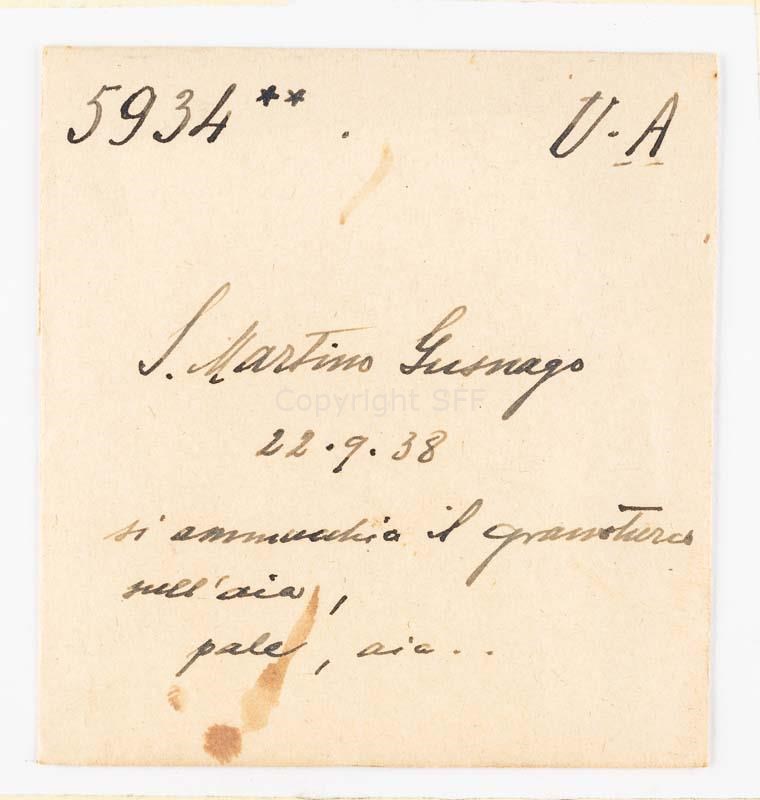 5934** . U.A
S. Martino Gusnago
Copyright SFF
22.9.38
si ammucchia il granoturco
sull'aia,
pale, aia..